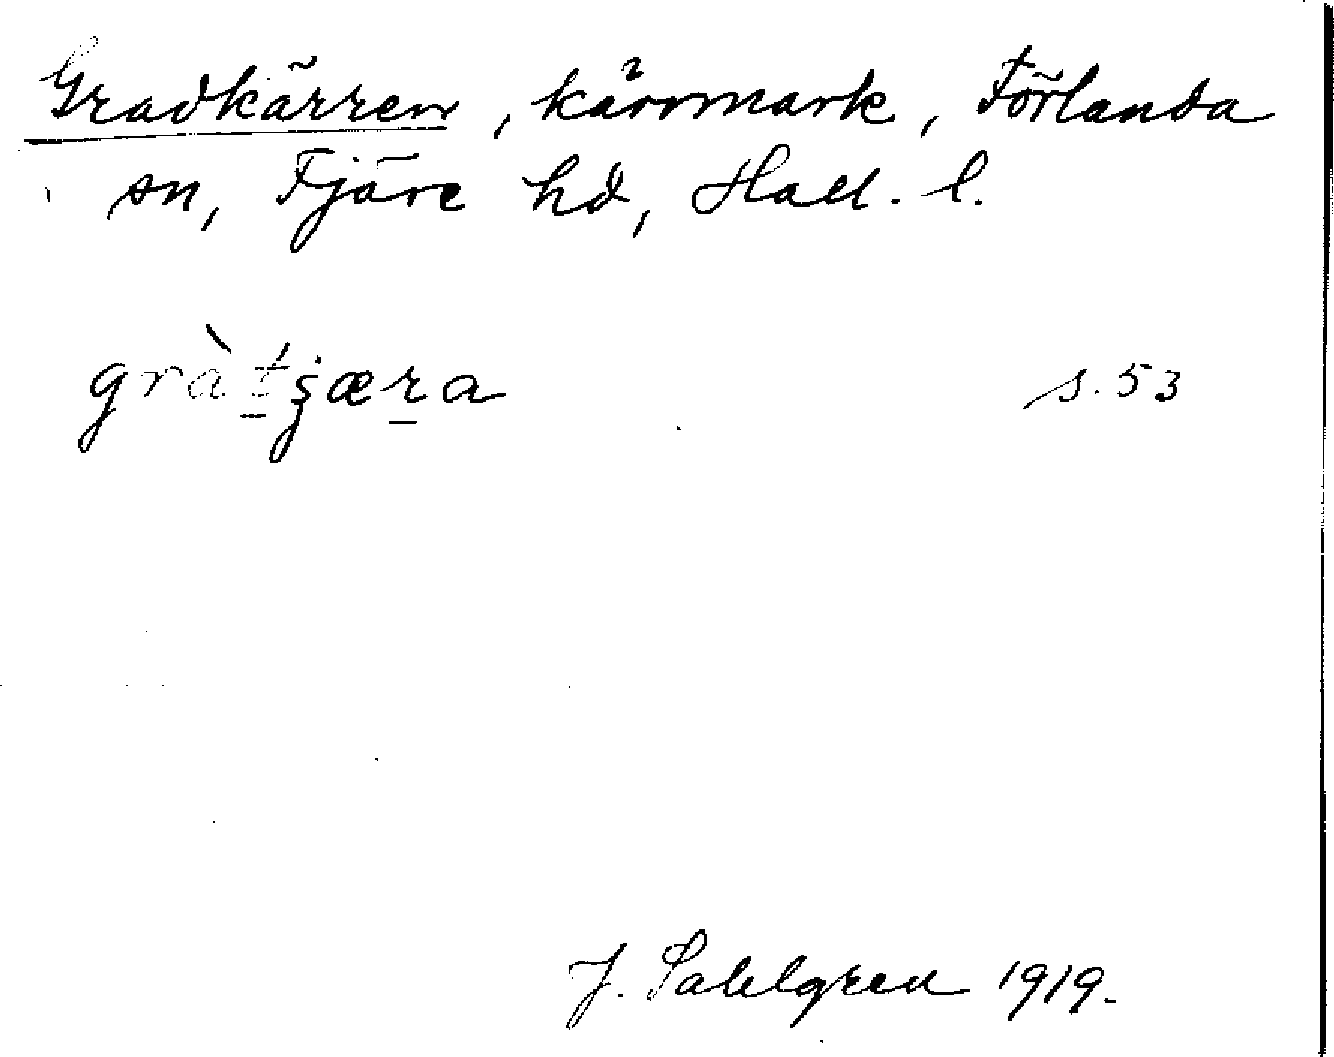 Gradkärren, kärrmark, Förlanda
sn, Fjäre hd, Hall. l.
gràt̠ʒær̠a s. 53
J. Sahlgren 1919.